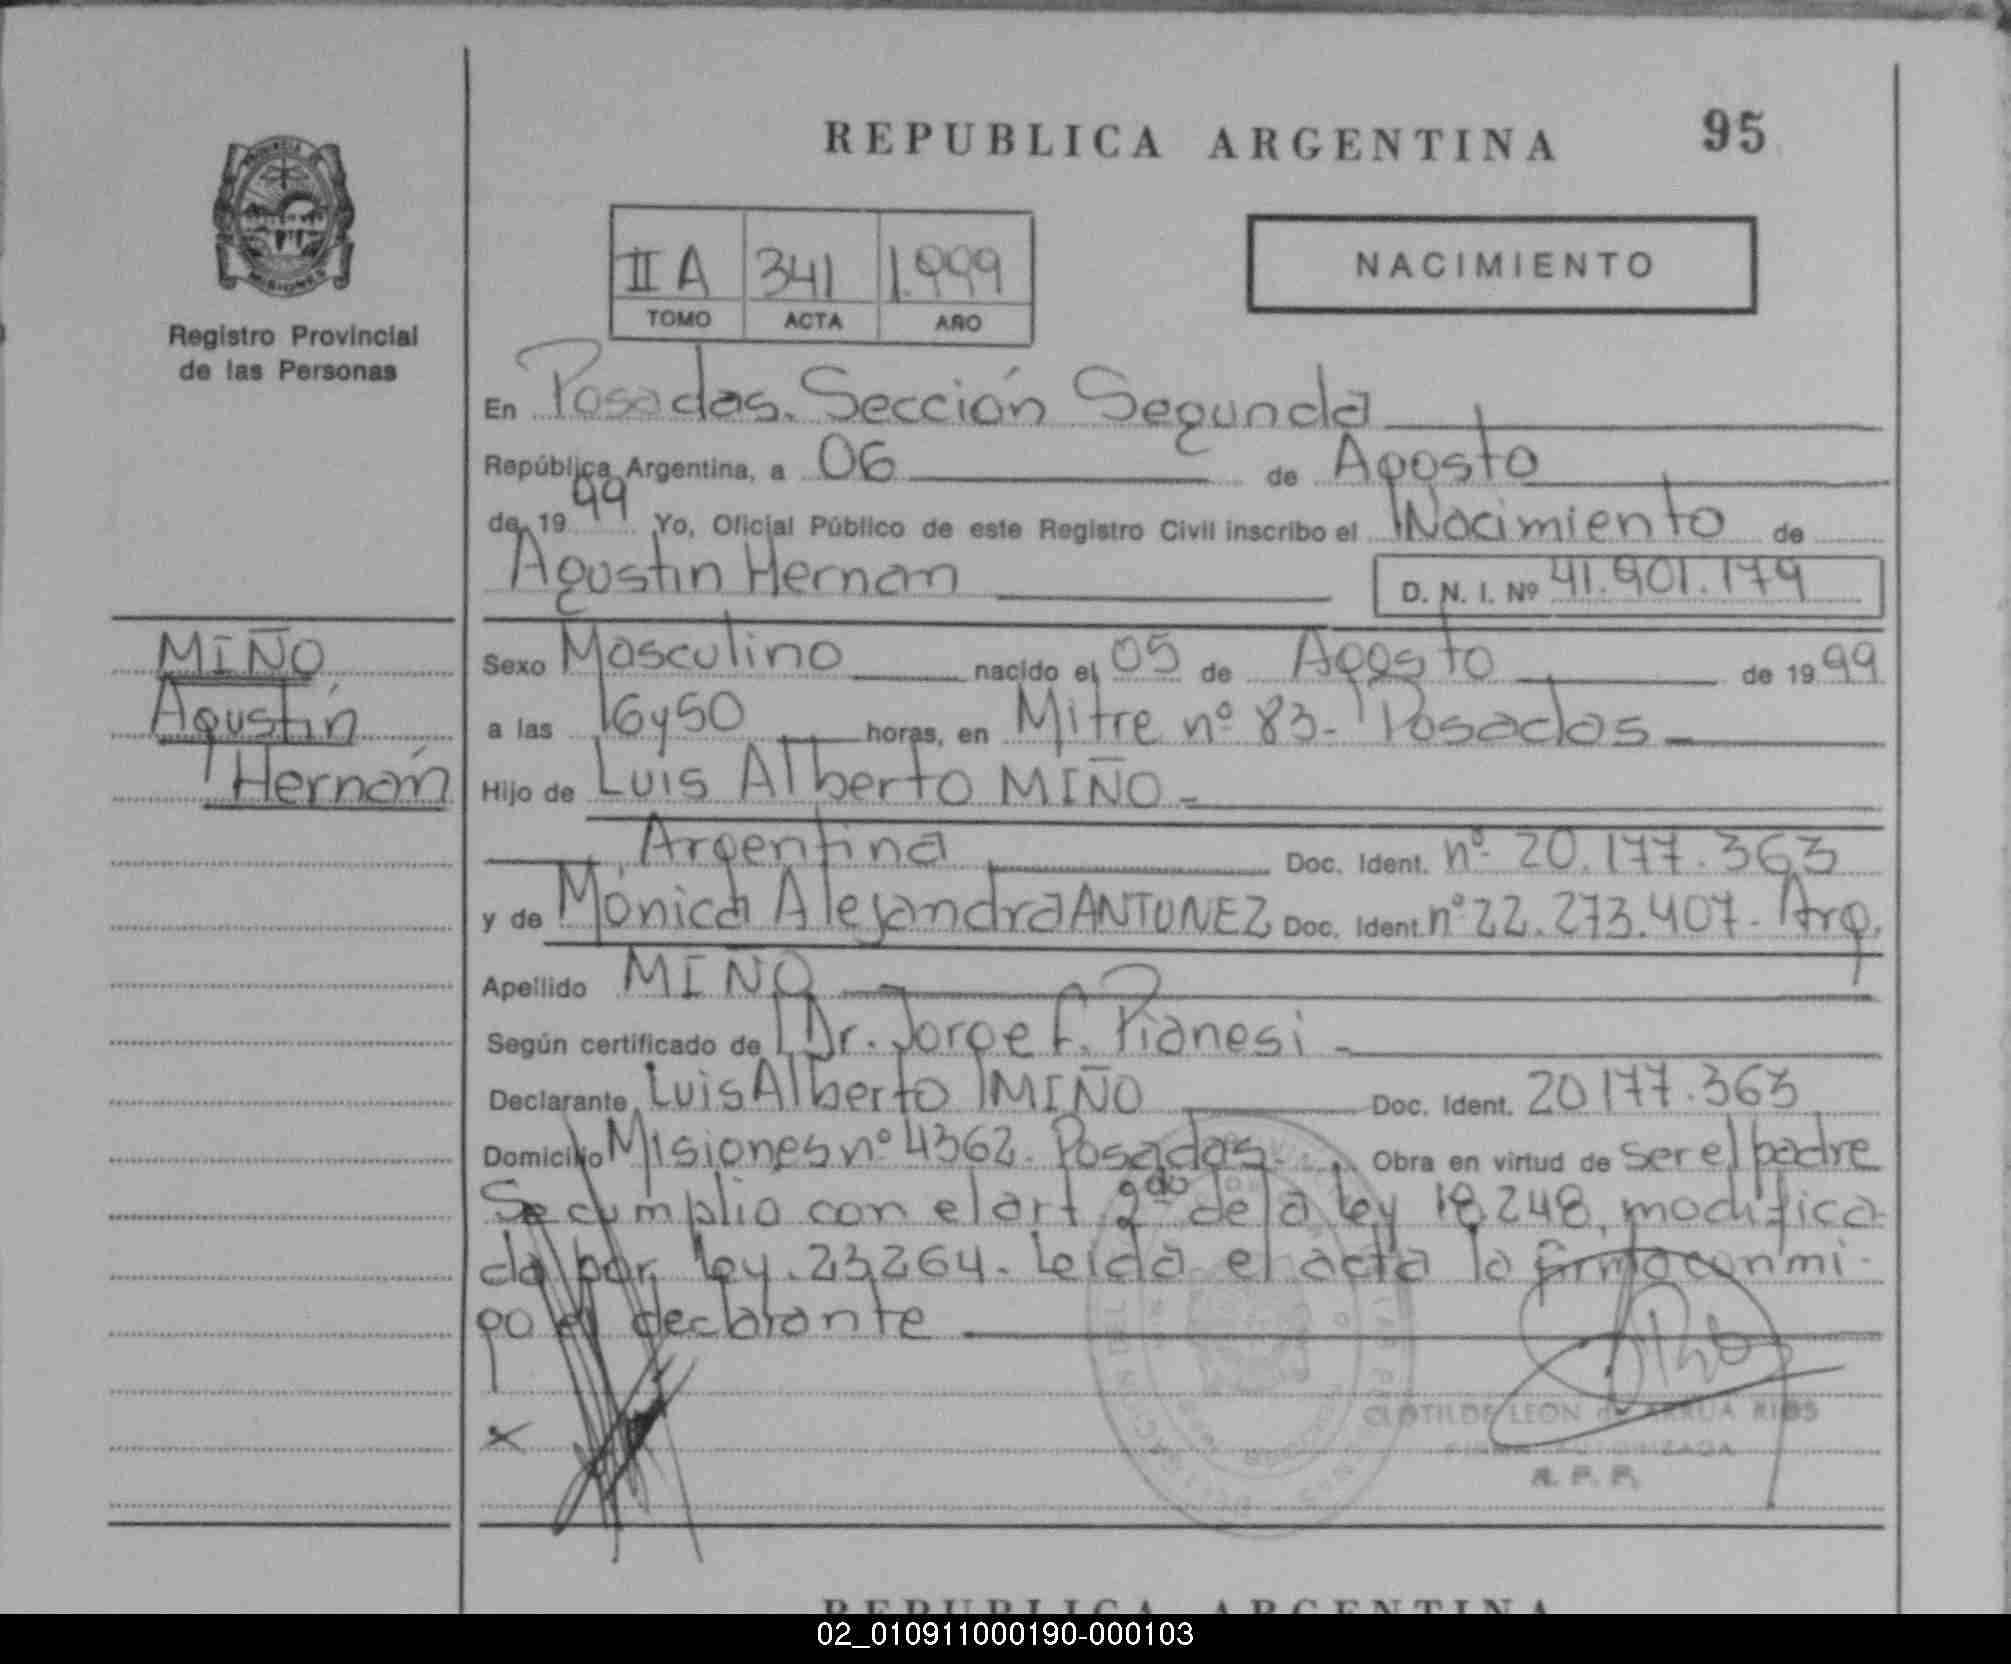 REPUBLICA ARGENTINA 95
PROVINCIA DE
MISIONES
Registro Provincial
de las Personas
II A 341 1.999
TOMO ACTA AÑO
NACIMIENTO
En Posadas. Sección Segunda
República Argentina, a 06 de Agosto
de 19 99 Yo, Oficial Público de este Registro Civil inscribo el Nacimiento de
Agustin Hernan D. N. I. Nº 41.901.179
MIÑO
Agustín
Hernán
Sexo Masculino nacido el 05 de Agosto de 19 99
a las 16 y 50 horas, en Mitre nº 83- Posadas
Hijo de Luis Alberto MIÑO
Argentina Doc. Ident. nº 20.177.363
y de Mónica Alejandra ANTUNEZ Doc. Ident. nº 22.273.407- Arg.
Apellido MIÑO
Según certificado de Dr. Jorge F. Pianesi
Declarante Luis Alberto MIÑO Doc. Ident. 20177.363
Domicilio Misiones nº 4362. Posadas. Obra en virtud de ser el padre
Se cumplio con el art 2do de la ley 18.248, modifica
da por ley. 23264. Leida el acta la firma conmi-
go el declarante
x
CLOTILDE LEON de ARRUA RIOS
FIRMA AUTORIZADA
R. P. P.
REPUBLICA ARGENTINA
02_010911000190-000103